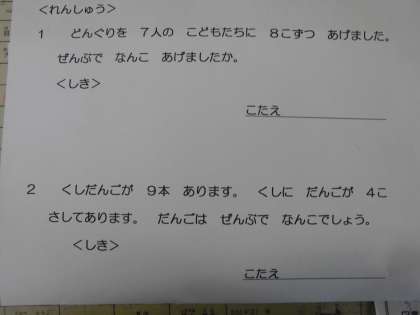 <れんしゅう>
1 どんぐりを 7人の こどもたちに 8こずつ あげました。
ぜんぶで なんこ あげましたか。
<しき>
こたえ
2 くしだんごが 9本 あります。 くしに だんごが 4こ
さしてあります。 だんごは ぜんぶで なんこでしょう。
<しき>
こたえ